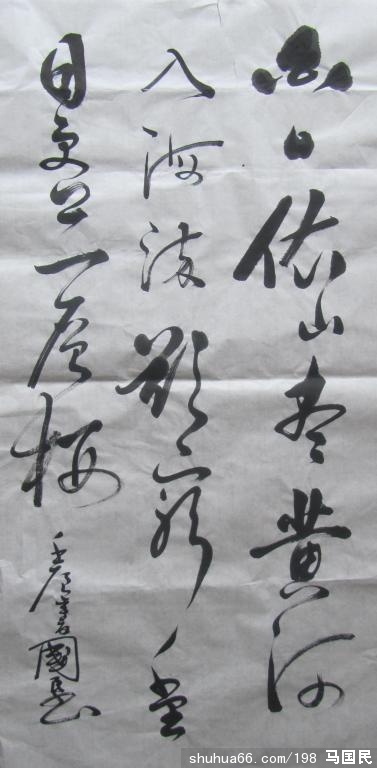 白日依山尽黄河
入海流欲穷千里
目更上一层楼
壬辰書國民
shuhua66.com/198 马国民